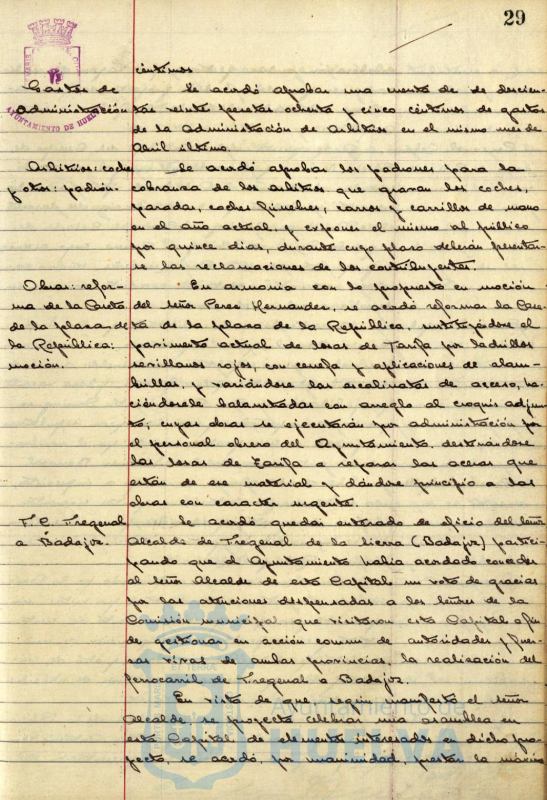 29
céntimos
Gastos de
Administración
AYUNTAMIENTO DE HUELVA
Se acordó aprobar una cuenta de de doscien-
tas veinte pesetas ochenta y cinco céntimos de gastos
de la Administración de Arbitrios en el mismo mes de
Abril último.
Arbitrios: coches
y otros: padrón.
Se acordó aprobar los padrones para la
cobranza de los arbitrios que gravan los coches,
paradas, coches fúnebres, carros y carrillos de mano
en el año actual, y exponer el mismo al público
por quince días, durante cuyo plazo deberán presentar-
se las reclamaciones de los contribuyentes.
Obras: refor-
ma de la Caseta
de la plaza de
la República:
moción.
En armonia con lo propuesto en moción
del señor Perez Hernandez, se acordó reformar la Case-
ta de la plaza de la República, sustituyéndose el
pavimento actual de losas de Tarifa por ladrillos
sevillanos rojos, con cenefa y aplicaciones de olam-
brillas, y variándose las escalinatas de acceso, ha-
ciéndosele balaustradas con arreglo al croquis adjun-
to; cuyas obras se ejecutarán por administración por
el personal obrero del Ayuntamiento, destinándose
las losas de Tarifa a reparar las aceras que
están de ese material y dándose principio a las
obras con caracter urgente.
F. C. Fregenal
a Badajoz.
Se acordó quedar enterado de oficio del señor
Alcalde de Fregenal de la Sierra (Badajoz) partici-
pando que el Ayuntamiento habia acordado conceder
al señor Alcalde de esta Capital un voto de gracias
por las atenciones dispensadas a los señores de la
Comisión municipal que visitaron esta Capital a fin
de gestionar en acción comun de autoridades y fuer-
zas vivas de ambas provincias, la realización del
ferrocarril de Fregenal a Badajoz.
En vista de que segun manifestó el señor
Alcalde, se proyecta celebrar una asamblea en
esta Capital de elementos interesados en dicho pro-
yecto, se acordó, por unanimidad, prestar la máxima
Ayuntamiento de
HUELVA